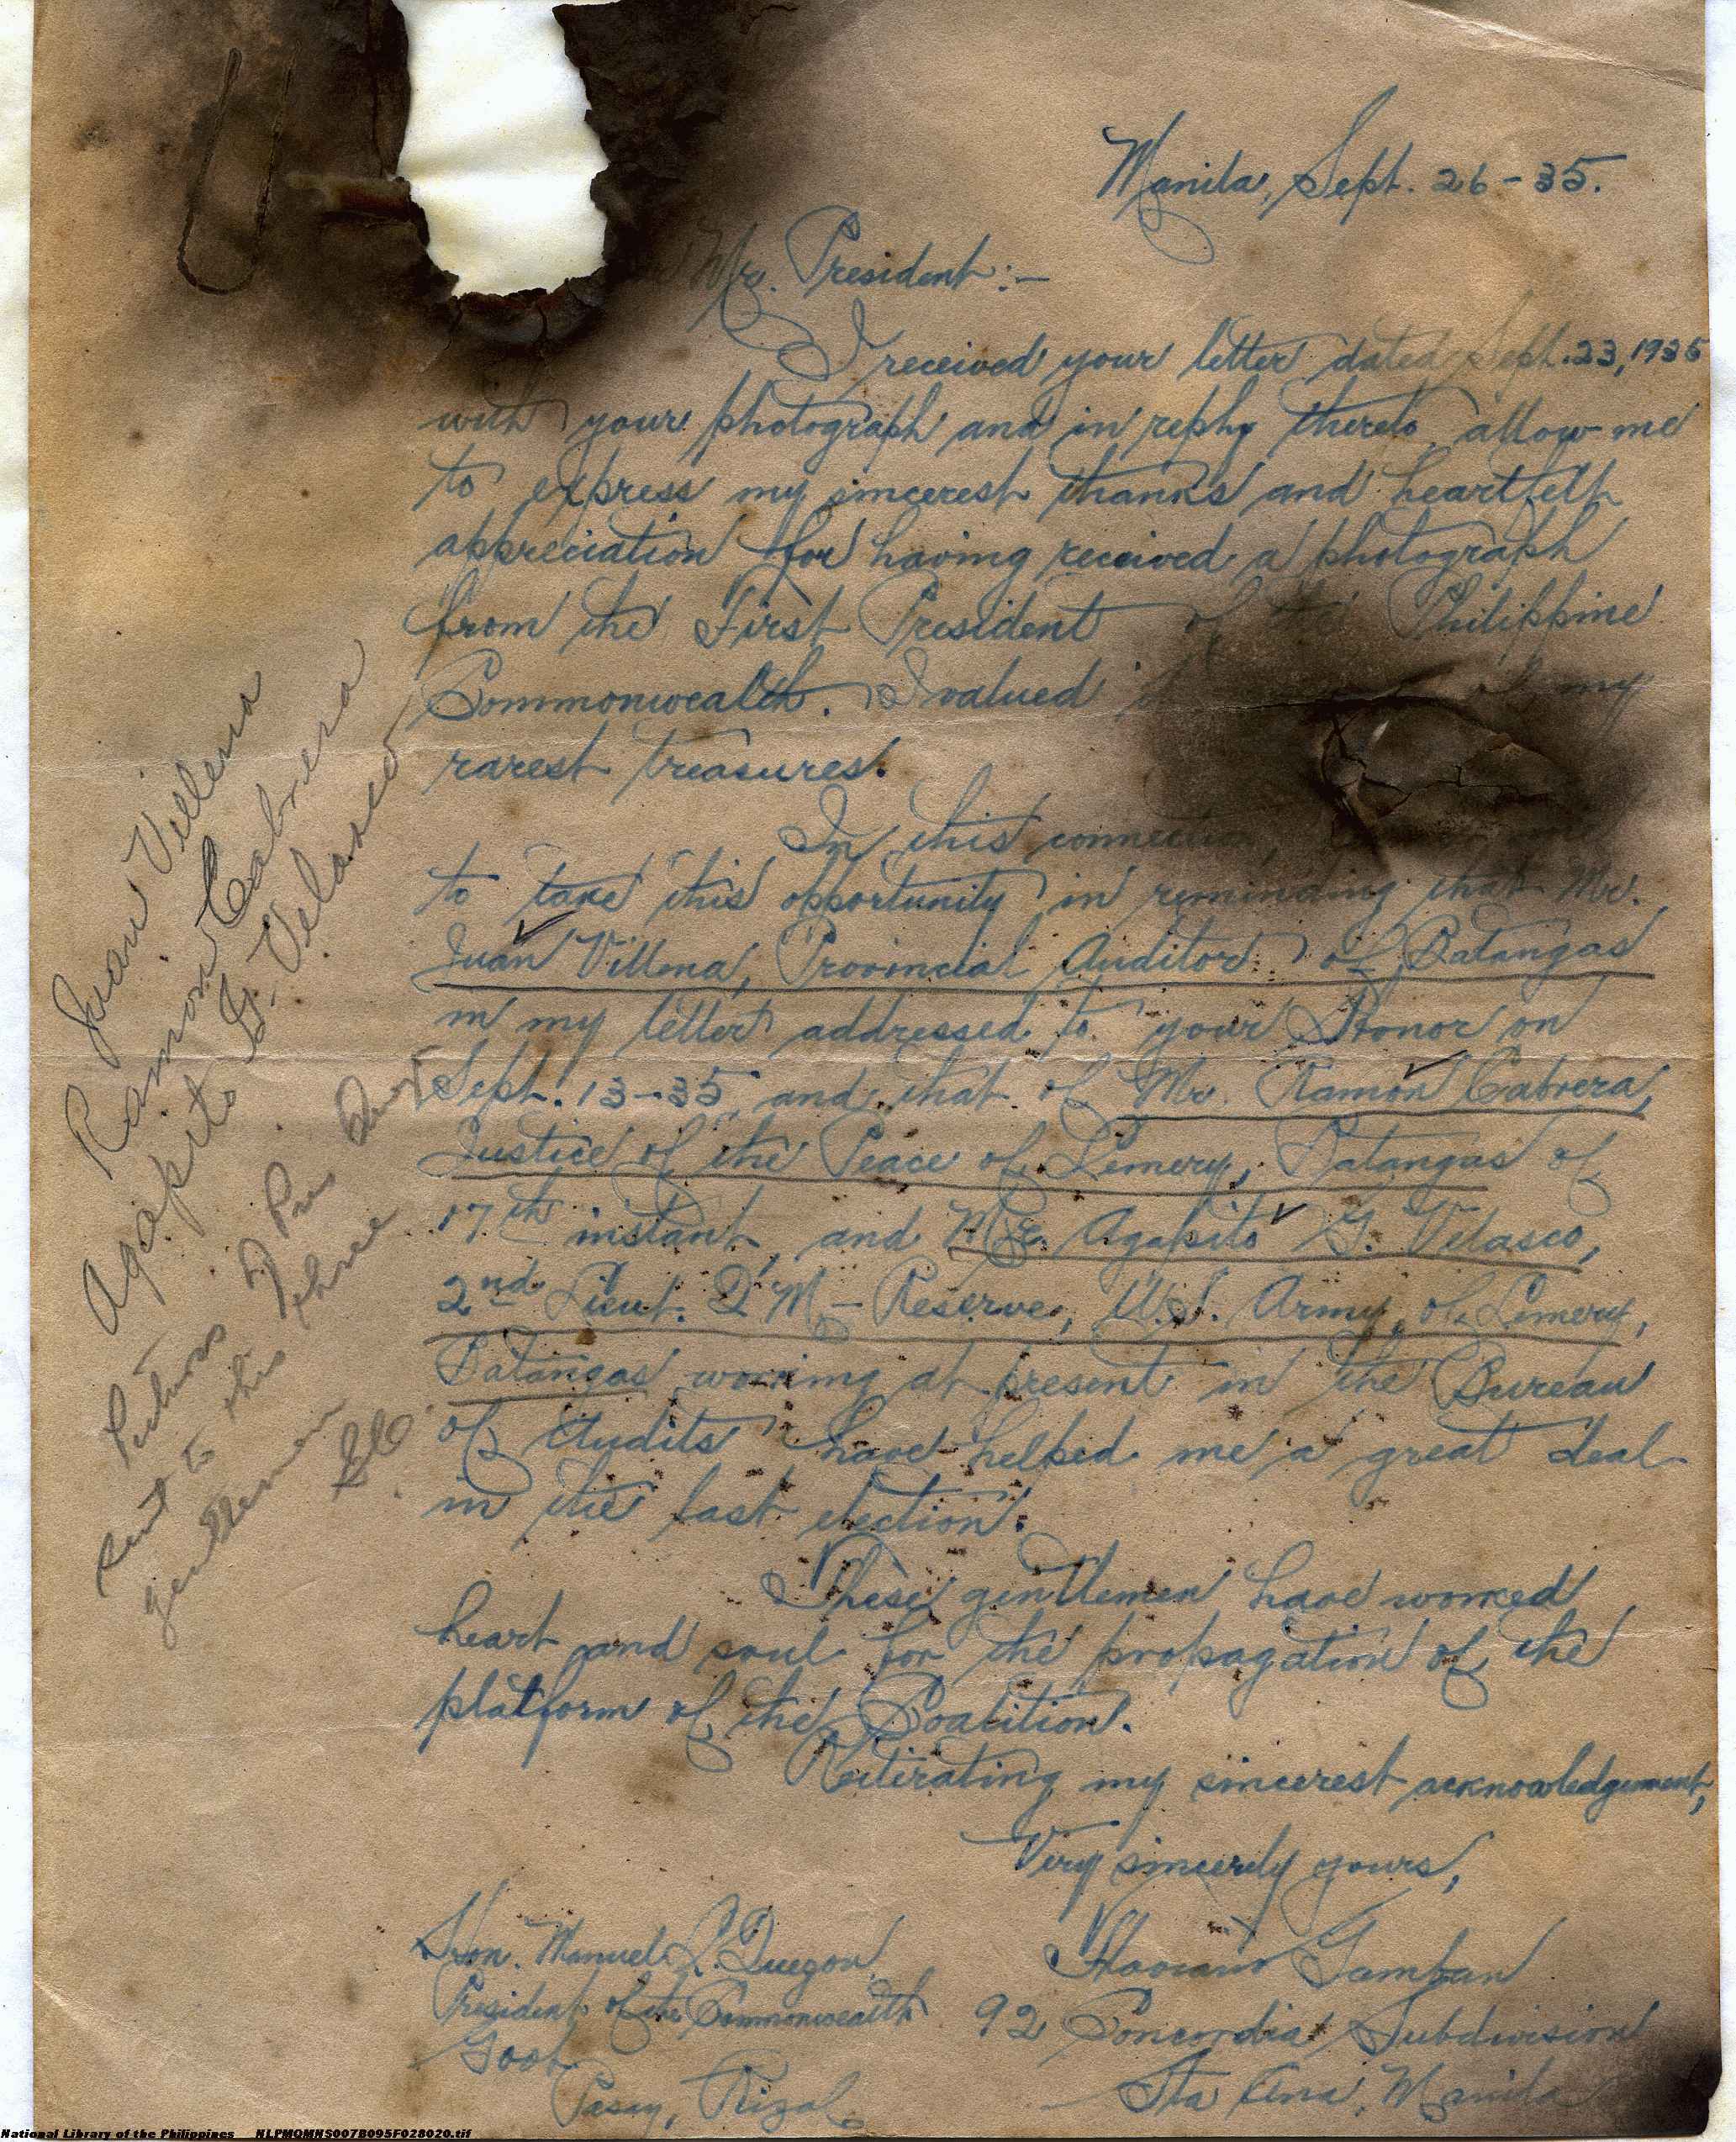 Manila, Sept. 26-35.
Mr. President:-
I received your letter dated Sept. 23, 1935
with your photograph and in reply thereto, allow me
to express my sincerest thanks and heartfelt
appreciation for having received a photograph
from the First President of the Philippine
Commonwealth. I valued my
rarest treasures.
In this connection,
to take this opportunity in reminding that Mr.
Juan Villena, Provincial Auditor of Batangas
in my letter addressed to your Honor on
Sept. 13-35, and that of Mr. Ramon Cabrera,
Justice of the Peace of Lemery, Batangas of
17th instant, and Mr. Agapito G. Velasco,
2nd Lieut. Q M - Reserve, U.S. Army, of Lemery,
Batangas working at present in the Bureau
of Audits have helped me a great deal
in the last election.
These gentlemen have worked
heart and soul for the propagation of the
platform of the Coalition.
Reiterating my sincerest acknowledgement,
Very sincerely yours,
Flaviano
92 Concordia Subdivision
Sta Ana, Manila
Hon. Manuel L. Quezon
President of the Commonwealth
Pasay, Rizal.
Juan Villena
Ramon Cabrera
Agapito G. Velasco
Pictures of Pres
sent to this three
gentlemen
National Library of the Philippines NLPMQMNS007B095F028020.tif